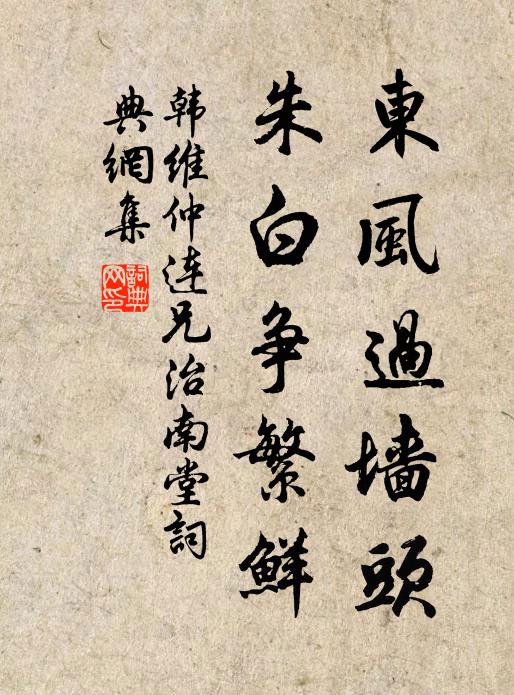 東風過墙頭
朱白争繁鮮
韩維仲連兄治南堂詞
典網集
詞典網印